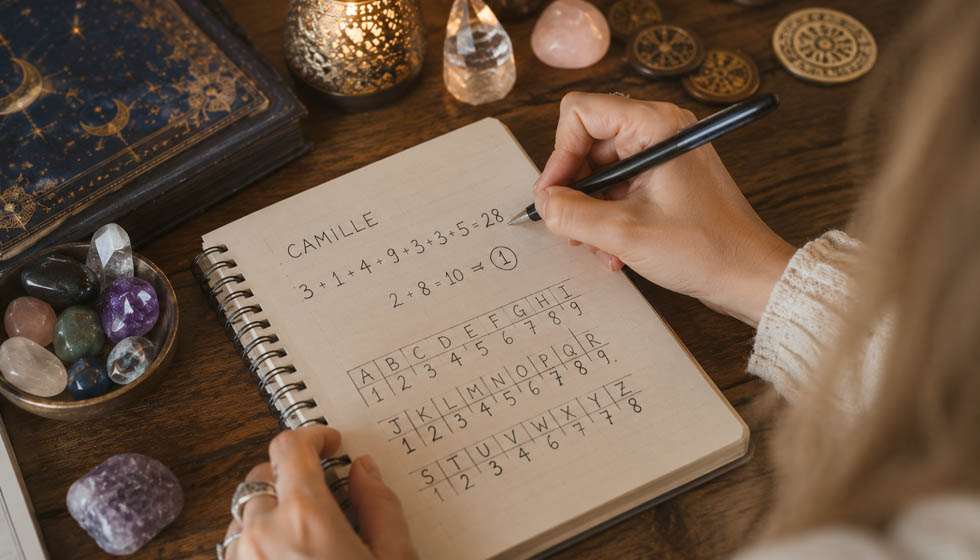 CAMILLE
3+1+4+9+3+3+5=28
2+8=10 ⇒ 1
A B C D E F G H I
1 2 3 4 5 6 7 8 9
J K L M N O P Q R
1 2 3 4 5 6 7 8 9.
S T U V W X Y Z
1 2 3 4 6 7 7 8